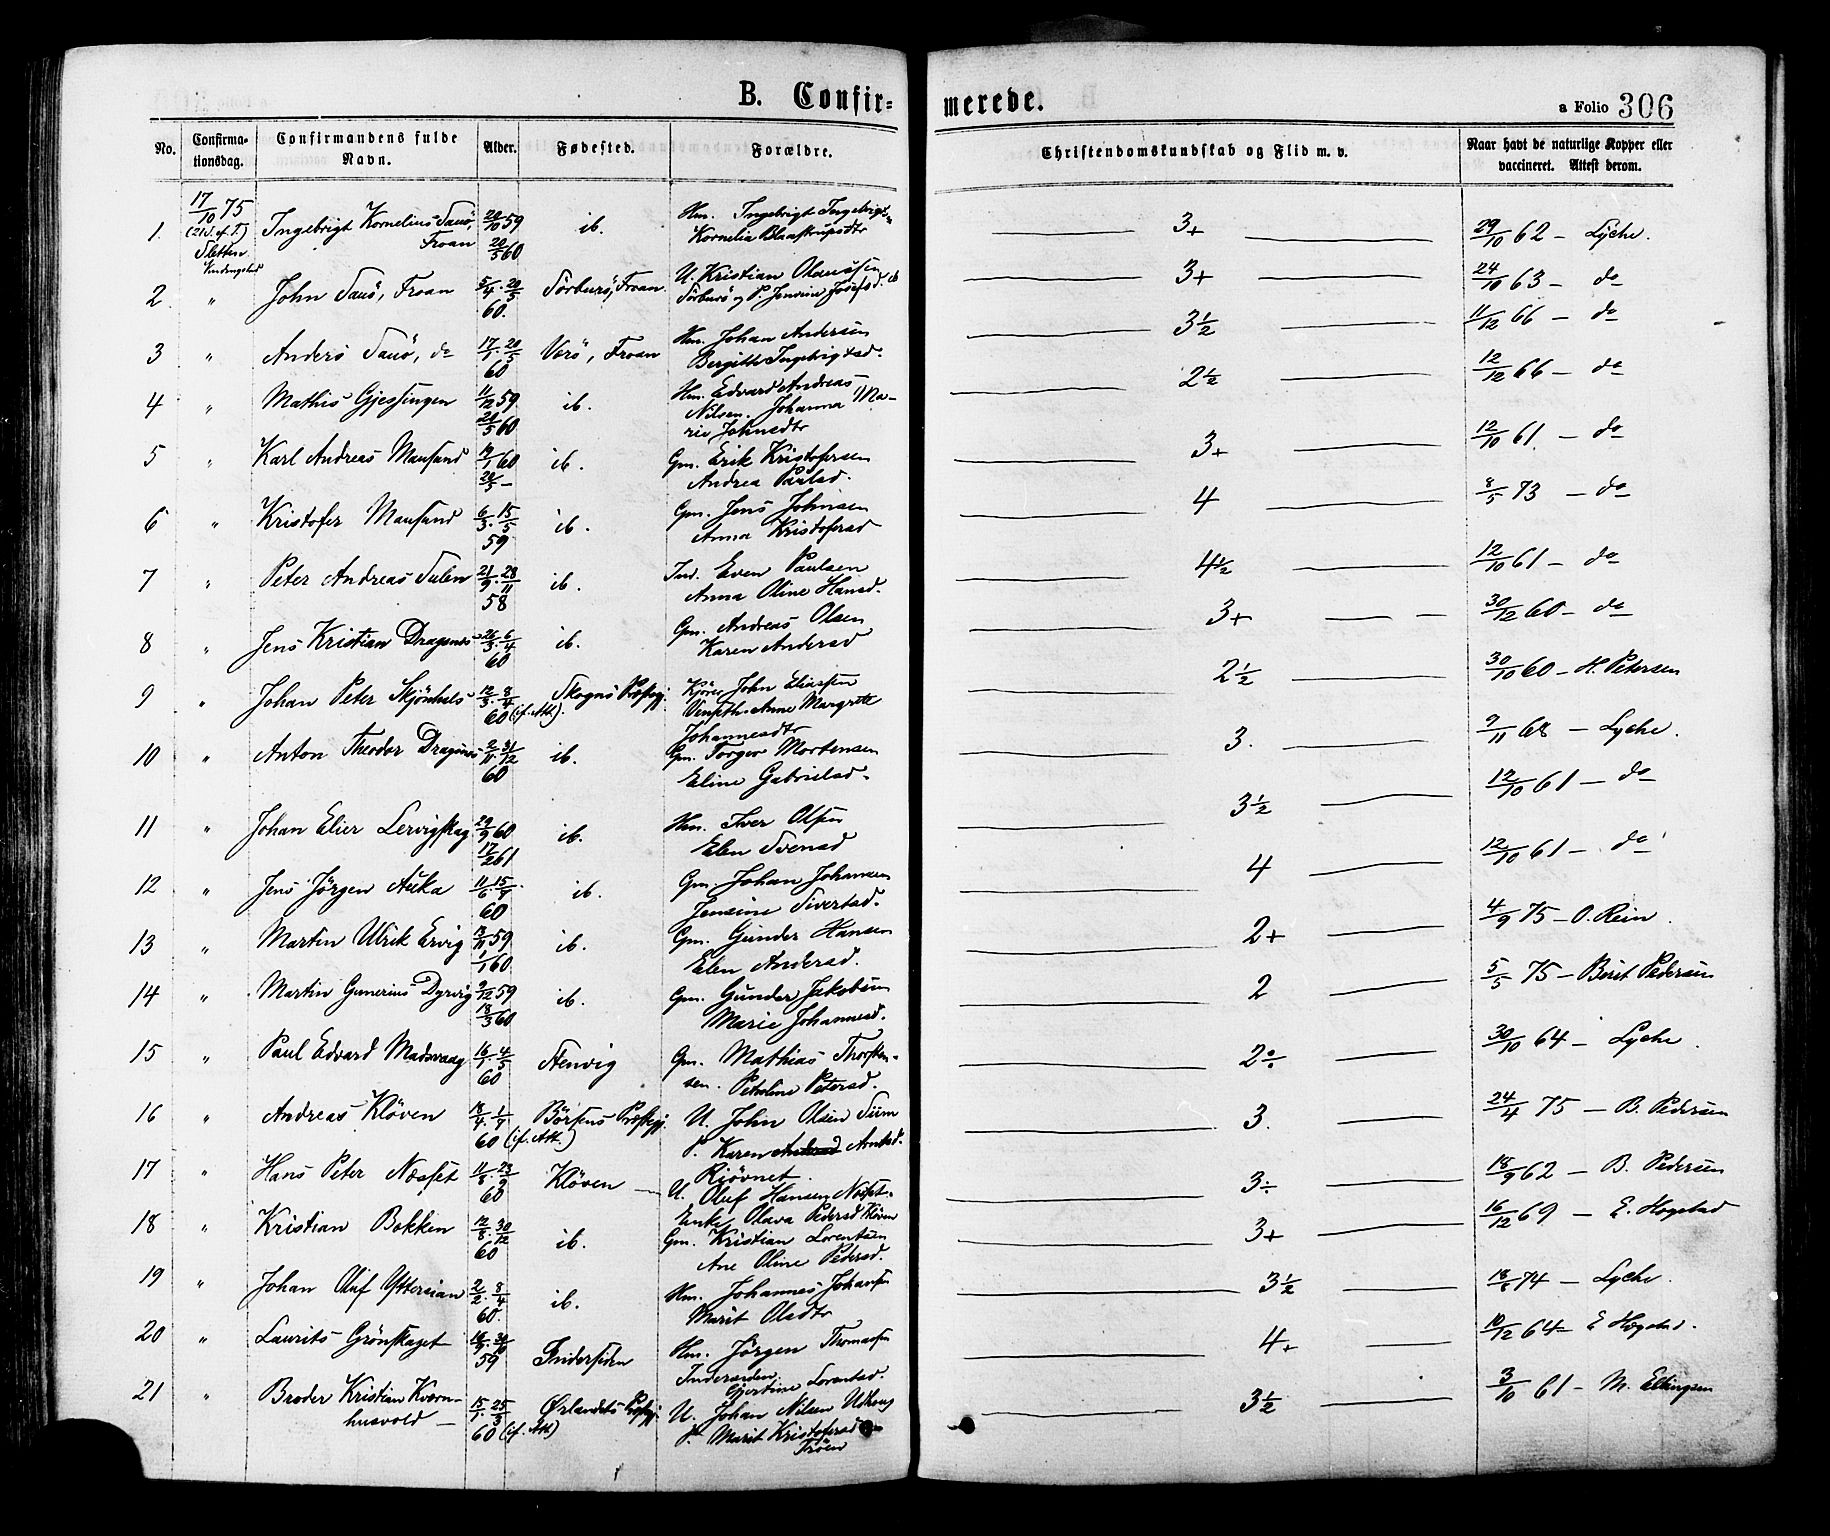 B. Confir=
merede.
a Folio 306
No.
Confirma-
tionsdag.
Confirmandens fulde
Navn.
Alder.
Fødested.
Forældre.
Christendomskundskab og Flid m. v.
Naar havt de naturlige Kopper eller
vaccineret. Attest derom.
17/10 75
(21 S. ef. T.)
Sletten
1. Ingebrigt Kornelius Sauø, 20/10 59 ib. Hm. Ingebrigt Ingebrigts- 3+ 29/10 62 – Lyche.
Froan 20/5 60 Kornelia
2. " John Sauø, Froan 5/4. 20/5 Sørburø, Froan U. Kristian Olaussen 3+ 24/10 63 – do
60. Sørburø og P. Josefsd.
3 " Anders Sauø, do 17/1. 20/5 Verø, Froan Hm. Johan Andersen 3½ 11/12 66 – do
60 Bergitte Ingebrigtsd.
4 " Mathis Gjessingen 11/12 59 ib. Hm. Edvard Andreas 2½ 12/12 66 – do
20/5 60 Nilsen. Johanna Ma-
rie Johnsdtr
5 " Karl Andreas Mausund 60 ib. Gm. Erik Kristofersen 3+ 12/10 61. – do
20/5 – Andrea Paulsd.
6 " Kristofer Mausund 6/3. 15/5 ib. Gm. Jens Johnsen 4 8/5 73 – do
59 Anna Kristofersd
7 " Peter Andreas Sulen 21/9. 28/11 ib. Ind. Even Paulsen 4½ 12/10 61 – do
58 Anna Oline Hansd.
8 " Jens Kristian Dragsnes 26/3. 6/4 ib. Gm. Andreas Olsen 3+ 30/12 60 – do
60 Karen Andersd
9 " Johan Peter Skjønhals 12/3. 8/4 Skogns Præstegj. John Eliassen 2½ 30/10 60 – H. Petersen
60 (if. Att.). Anne Margrete
Johannesdtr
10 " Anton Theodor Dragsnes 2/11. 31/12 ib. Gm. Torger Mortensen 3. 9/11 68 – Lyche.
60 Eline Gabrielsd.
11 " Johan Elier Lervigskag 29/9 60 ib. Hm. Iver Olsen 3½ 12/10 61 – do
17/2 61 Elen Svensd
12 " Jens Jørgen Auka 11/6. 15/7 ib. Gm. Johan Johansen 4 12/10 61 – do
60 Jensine Sivertsd.
13 " Martin Ulrik Ervig 13/11 59 ib. Gm. Gunder Hansen 2+ 4/9 75 – O. Rein.
1/1 60 Elen Andersd.
14 " Martin Gunerius Dyrvig 9/12 59 ib. Gm. Gunder Jakobsen 2 5/5 75 – Berit Pedersen
18/3 60 Marie Johannesd.
15 " Paul Edvard Madsvaag 16/1. 4/5 Stenvig Gm. Mathias Thorsten- 2÷ 30/10 64 – Lyche
60 sen. Petrline Petersd.
16 " Andreas Kløven 18/4. 1/7 Børsens Præstegj. U. John Olsen Siim 3. 24/4 75 – B. Pedersen
60 (if. Att.) P. Karen Andersd Arntsd.
17 " Hans Peter Næsset 11/8. 23/9 Kløven — 3÷ 18/9 62 – B. Pedersen
60 U. Oluf Hansen
18 " Kristian Bokken 12/8. 30/12 ib. Enke Olava Pedersd Kløven 3+ 16/12 69 – E. Hogstad
60 Gm. Kristian Lorentsen
Ane Oline Pedersd.
19 " Johan Oluf Yttersian 2/2. 8/4 ib. Hm. Johannes Johansen 3½ 18/8 74 – Lyche.
60. Marit Olsdtr
20 " Laurits Grønskaget Indersiden Hm. Jørgen Thomassen 4+ 10/12 64 – E Hogstad.
59 Gjertine Lorentsd.
21 " Broder Kristian Kværn- 15/1. 25/3 Ørlandets Præstegj. U. Johan Nilsen 3½ 3/10 61 – M. Ellingsen
husvold — 60 (if. Att) P. Marit Kristofersd
Frøien